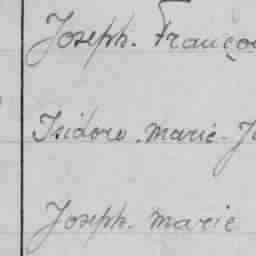 Joseph. Françoi
Isidore. Marie. J
Joseph. Marie